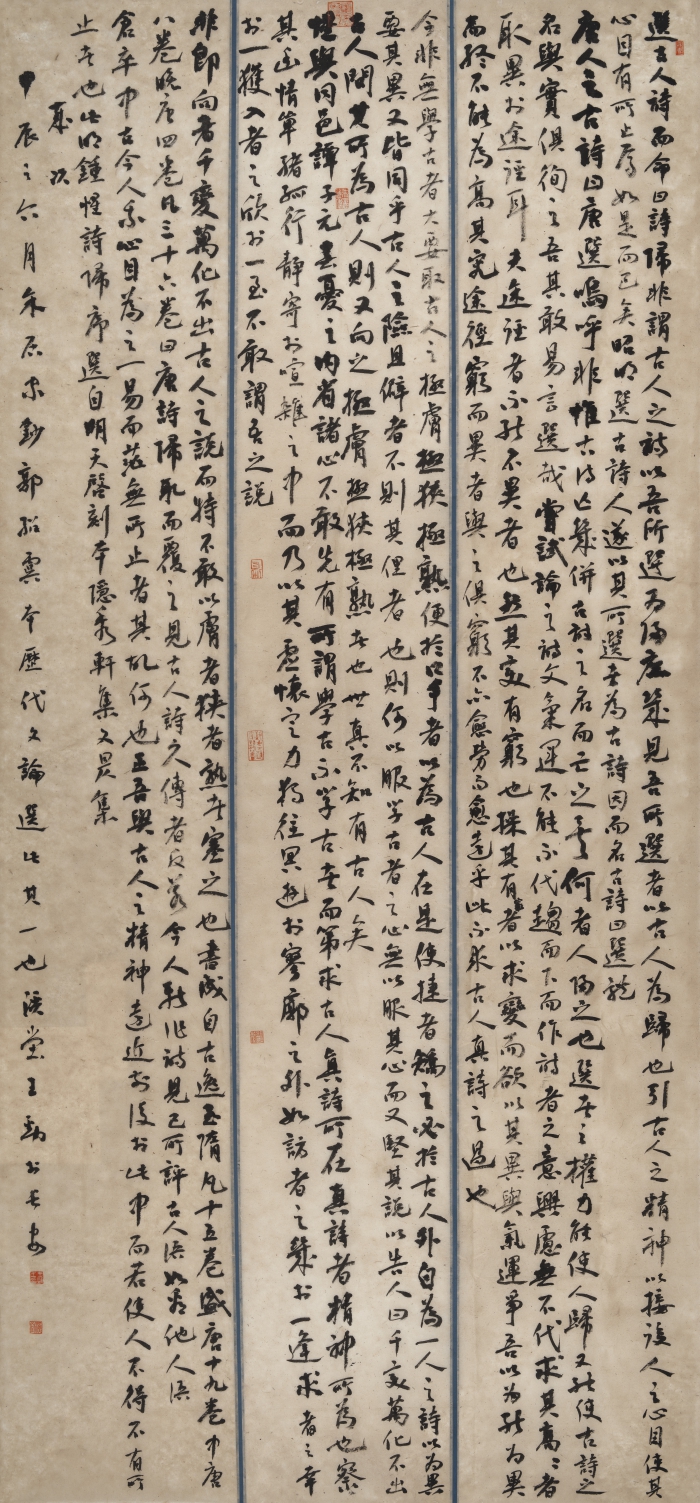 選古人詩而命曰詩歸非謂古人之詩以吾所選為歸庶幾見吾所選者以古人為歸也引古人之精神以接後人之心目使其
心目有所止焉如是而已矣昭明選古詩人遂以其所選者為古詩因而名古詩曰選體
唐人之古詩曰唐選嗚呼非惟古詩亡幾併古詩之名而亡之矣何者人歸之也選者之權力能使人歸又能使古詩之
名與實俱徇之吾其敢易言選哉嘗試論之詩文氣運不能不代趨而下而作詩者之意興慮無不代求其高高者
取異於途徑耳夫途徑者不能不異者也然其變有窮也操其有窮者以求變而欲以其異與氣運爭吾以為能為異
而終不能為高其究途徑窮而異者與之俱窮不亦愈勞而愈遠乎此不求古人真詩之過也
今非無學古者大要取古人之極膚極狹極熟便於口手者以為古人在是使捷者矯之必於古人外自為一人之詩以為異
要其異又皆同乎古人之險且僻者不則其俚者也則何以服學古者之心無以服其心而又堅其說以告人曰千變萬化不出
古人問其所為古人則又向之極膚極狹極熟者也世真不知有古人矣
惺與同邑譚子元春憂之內省諸心不敢先有所謂學古不學古者而第求古人真詩所在真詩者精神所為也察
其幽情單緒孤行靜寄於喧雜之中而乃以其虛懷定力獨往冥遊於寥廓之外如訪者之幾於一逢求者之幸
於一獲入者之欣於一至不敢謂吾之說
非即向者千變萬化不出古人之說而特不敢以膚者狹者熟者塞之也書成自古逸至隋凡十五卷盛唐十九卷中唐
八卷晚唐四卷凡三十六卷曰唐詩歸取而覆之見古人詩久傳者反若今人新作詩見己所評古人語如看他人語
倉卒中古今人我心目為之一易而茫無所止者其故何也正吾與古人之精神遠近前後於此中而若使人不得不有所
止者也此明鍾惺詩歸序選自明天啓刻本隱秀軒集文昃集
甲辰之六月朱